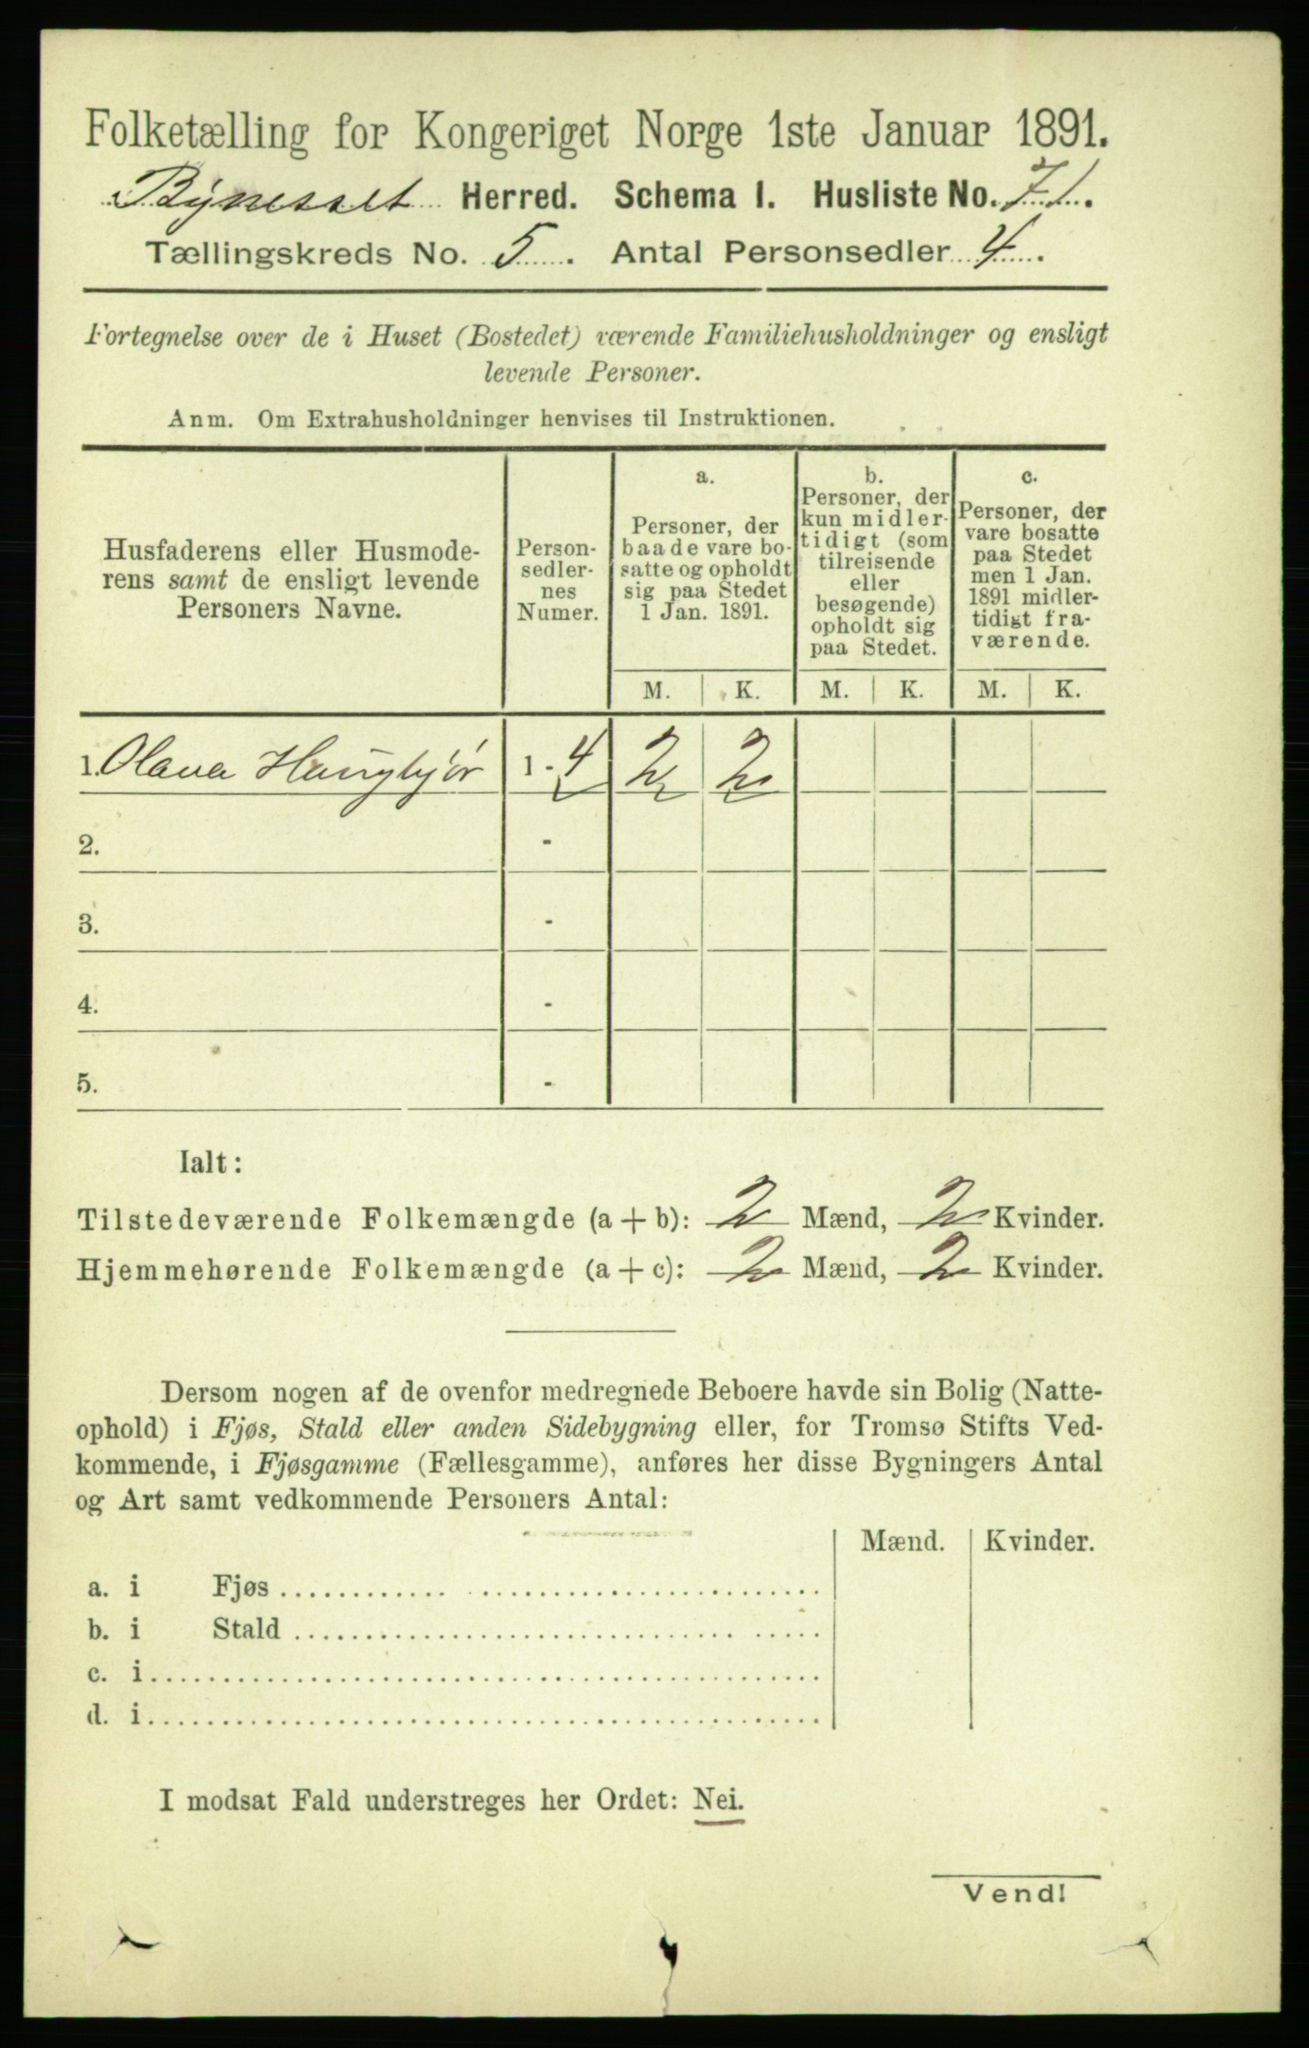 Folketælling for Kongeriget Norge 1ste Januar 1891.
Bynesset Herred. Schema 1. Husliste No. 71.
Tællingskreds No. 5. Antal Personsedler 4.
Fortegnelse over de i Huset (Bostedet) værende Familiehusholdninger og ensligt
levende Personer.
Anm. Om Extrahusholdninger henvises til Instruktionen.
Husfaderens eller Husmode-
rens samt de ensligt levende
Personers Navne.
Person-
sedler-
nes
Numer.
a.
Personer, der
baade vare bo-
satte og opholdt
sig paa Stedet
1 Jan. 1891.
b.
Personer, der
kun midler-
tidigt (som
tilreisende
eller
besøgende)
opholdt sig
paa Stedet.
c.
Personer, der
vare bosatte
paa Stedet
men 1 Jan.
1891 midler-
tidigt fra-
værende.
M. K. M. K. M. K.
1. Olava Haugbjør 1 - 4 2 2
2. -
3. -
4. -
5. -
Ialt:
Tilstedeværende Folkemængde (a + b): 2 Mænd, 2 Kvinder.
Hjemmehørende Folkemængde (a + c): 2 Mænd, 2 Kvinder.
Dersom nogen af de ovenfor medregnede Beboere havde sin Bolig (Natte-
ophold) i Fjøs, Stald eller anden Sidebygning eller, for Tromsø Stifts Ved-
kommende, i Fjøsgamme (Fællesgamme), anføres her disse Bygningers Antal
og Art samt vedkommende Personers Antal:
Mænd. Kvinder.
a. i Fjøs
b. i Stald
c. i
d. i
I modsat Fald understreges her Ordet: Nei.
Vend!